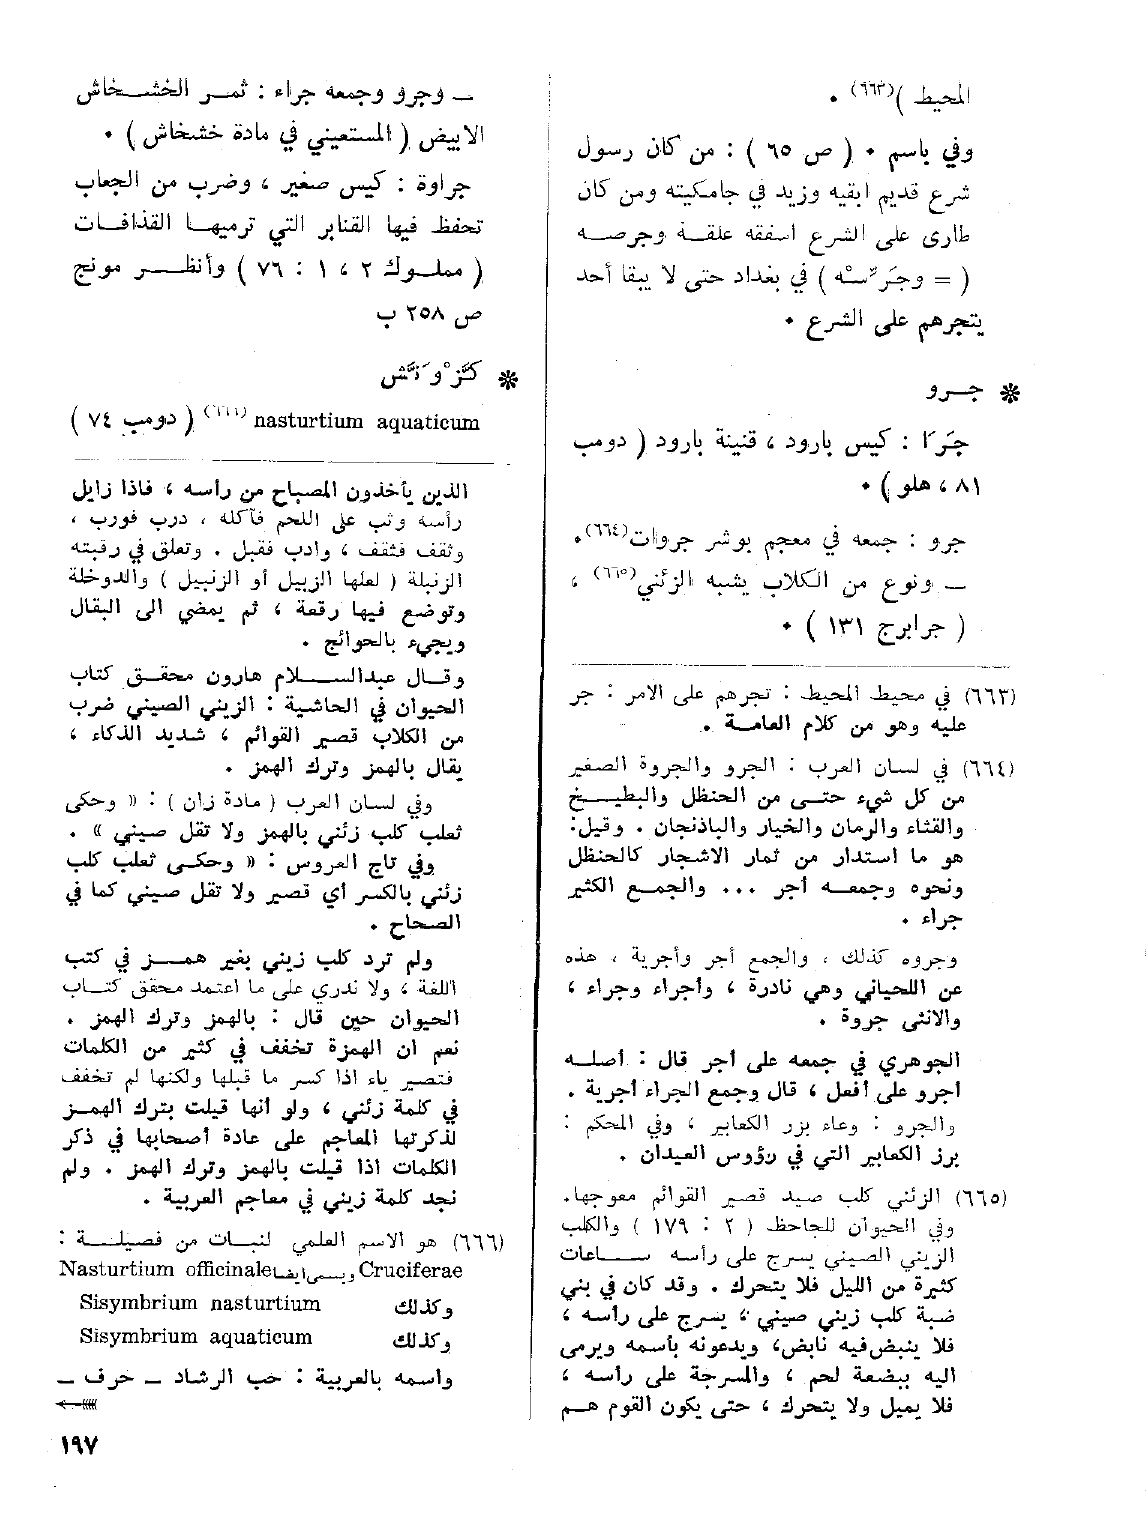 المحيط )(٦٦٣) ٠
وفي باسم ٠ ( ص ٦٥ ) : من كان رسول
شرع قديم ابقيه وزيد في جامكيته ومن كان
طارى على الشرع اسفقه علقة وجرصه
( = وجرّسه ) في بغداد حتى لا يبقا أحد
يتجرهم على الشرع ٠
* جرو
جَرَا : كيس بارود ، قنينة بارود ( دومب
٨١ ، هلو ) ٠
جرو : جمعه في معجم بوشر جروات(٦٦٤)٠
ــ ونوع من الكلاب يشبه الزئني(٦٦٥) ،
( جرابرج ١٣١ ) ٠
(٦٦٣) في محيط المحيط : تجرهم على الامر : جر
عليه وهو من كلام العامة ٠
(٦٦٤) في لسان العرب : الجرو والجروة الصغير
من كل شيء حتى من الحنظل والبطيخ
والقثاء والرمان والخيار والباذنجان ٠ وقيل:
هو ما استدار من ثمار الاشجار كالحنظل
ونحوه وجمعه أجر ٠٠٠ والجمع الكثير
جراء ٠
وجروه كذلك ، والجمع أجر وأجرية ، هذه
عن اللحياني وهي نادرة ، وأجراء وجراء ،
والانثى جروة ٠
الجوهري في جمعه على أجر قال : أصله
أجرو على أفعل ، قال وجمع الجراء أجرية ٠
والجرو : وعاء بزر الكعابير ، وفي المحكم :
بزر الكعابير التي في رؤوس العيدان ٠
(٦٦٥) الزئني كلب صيد قصير القوائم معوجها٠
وفي الحيوان للجاحظ ( ٢ : ١٧٩ ) والكلب
الزيني الصيني يسرج على رأسه ساعات
كثيرة من الليل فلا يتحرك ٠ وقد كان في بني
ضبة كلب زيني صيني ، يسرج على رأسه ،
فلا ينبض فيه نابض، ويدعونه بأسمه ويرمى
اليه ببضعة لحم ، والمسرجة على رأسه ،
فلا يميل ولا يتحرك ، حتى يكون القوم هم
ــ وجرو وجمعه جراء : ثمر الخشخاش
الابيض ( المستعيني في مادة خشخاش ) ٠
جراوة : كيس صغير ، وضرب من الجعاب
تحفظ فيها القنابر التي ترميها القذافات
( مملوك ٢ ، ١ : ٧٦ ) وأنظر مونج
ص ٢٥٨ ب
* كَرْوَنَش
nasturtium aquaticum (٦٦٦) ( دومب ٧٤ )
الذين يأخذون المصباح من رأسه ، فاذا زايل
رأسه وثب على اللحم فأكله ، درب فورب ،
وثقف فثقف ، وادب فقبل ٠ وتعلق في رقبته
الزنبلة ( لعلها الزبيل أو الزنبيل ) والدوخلة
وتوضع فيها رقعة ، ثم يمضي الى البقال
ويجيء بالحوائج ٠
وقال عبدالسلام هارون محقق كتاب
الحيوان في الحاشية : الزيني الصيني ضرب
من الكلاب قصير القوائم ، شديد الذكاء ،
يقال بالهمز وترك الهمز ٠
وفي لسان العرب ( مادة زان ) : « وحكى
ثعلب كلب زئني بالهمز ولا تقل صيني » ٠
وفي تاج العروس : « وحكى ثعلب كلب
زئني بالكسر أي قصير ولا تقل صيني كما في
الصحاح ٠
ولم ترد كلب زيني بغير همز في كتب
اللغة ، ولا ندري على ما اعتمد محقق كتاب
الحيوان حين قال : بالهمز وترك الهمز ٠
نعم ان الهمزة تخفف في كثير من الكلمات
فتصير ياء اذا كسر ما قبلها ولكنها لم تخفف
في كلمة زئني ، ولو أنها قيلت بترك الهمز
لذكرتها المعاجم على عادة أصحابها في ذكر
الكلمات اذا قيلت بالهمز وترك الهمز ٠ ولم
نجد كلمة زيني في معاجم العربية ٠
(٦٦٦) هو الاسم العلمي لنبات من فصيلة :
Cruciferae ويسمى ايضا Nasturtium officinale
وكذلك Sisymbrium nasturtium
وكذلك Sisymbrium aquaticum
واسمه بالعربية : حب الرشاد ــ حرف ــ
١٩٧